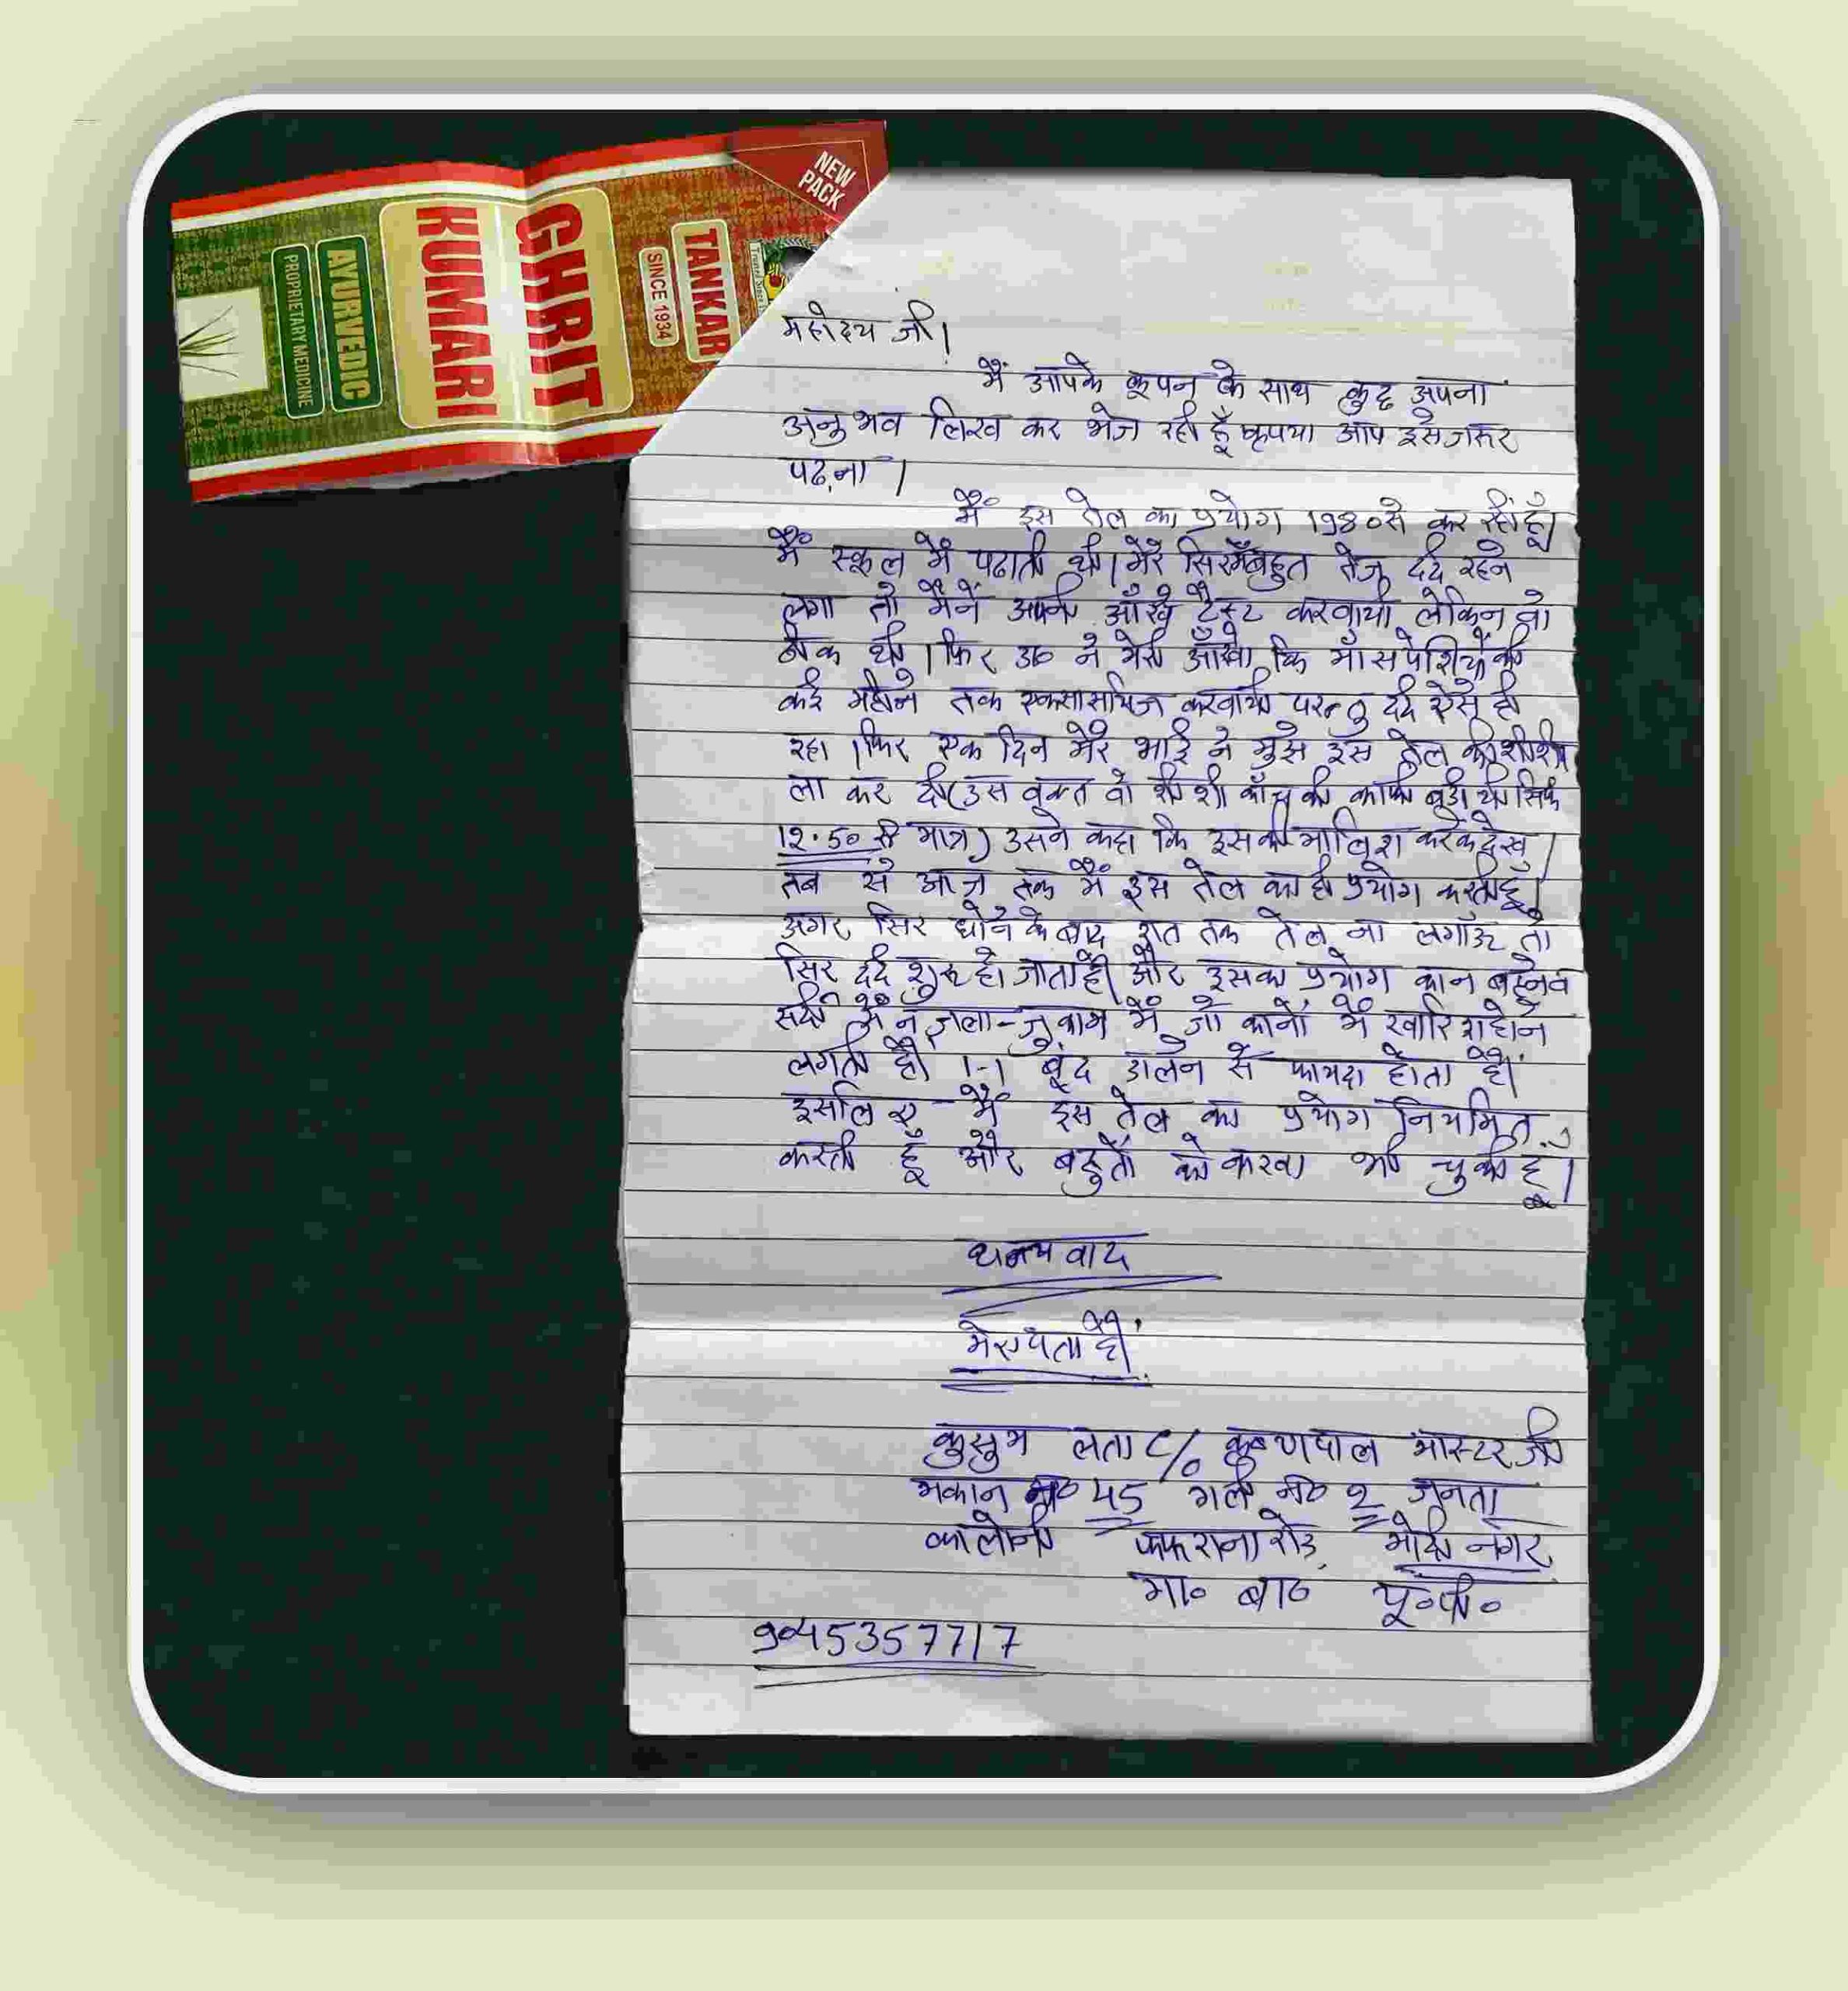 NEW
PACK
TANKAR
SINCE 1934
GHRIT
KUMARI
AYURVEDIC
PROPRIETARY MEDICINE
महोदय जी।
मैं आपके कूपन के साथ कुछ अपना
अनुभव लिख कर भेज रही हूँ कृपया आप इसे जरूर
पढ़ना।
मैं इस तेल का प्रयोग 1980 से कर रही हूँ।
मैं स्कूल में पढाती थी। मेरे सिर में बहुत तेज दर्द रहने
लगा तो मैंने अपनी आँखे टैस्ट करवायी लेकिन वो
ठीक थी। फिर डा० ने मेरी आँखो कि माँसपेशियों की
कई महीने तक एक्सासयिज करवायी परन्तु दर्द ऐसे ही
रहा। फिर एक दिन मेरे भाई ने मुझे इस तेल की शीशी
ला कर दी (उस वक्त वो शीशी काँच की काफी बड़ी थी सिर्फ
12.50 रु मात्र) उसने कहा कि इसकी मालिश करके देख।
तब से आज तक मैं इस तेल का ही प्रयोग करती हूँ।
अगर सिर धोने के बाद रात तक तेल ना लगाऊ तो
सिर दर्द शुरू हो जाता है। और इसका प्रयोग कान बहने व
सर्दी में नजला-जुकाम में जो कानों में खारिश होने
लगती है। 1-1 बूंद डालने से फायदा होता है।
इसलिए मैं इस तेल का प्रयोग नियमित
करती हूँ और बहुतों को करवा भी चुकी हूँ।
धन्यवाद
मेरा पता है।
कुसुम लता C/o कृष्णपाल मास्टर जी
मकान न० 45 गली न० 2 जनता
कालोनी फफराना रोड, मोदी नगर,
गा० बा० यू०पी०
9045357717